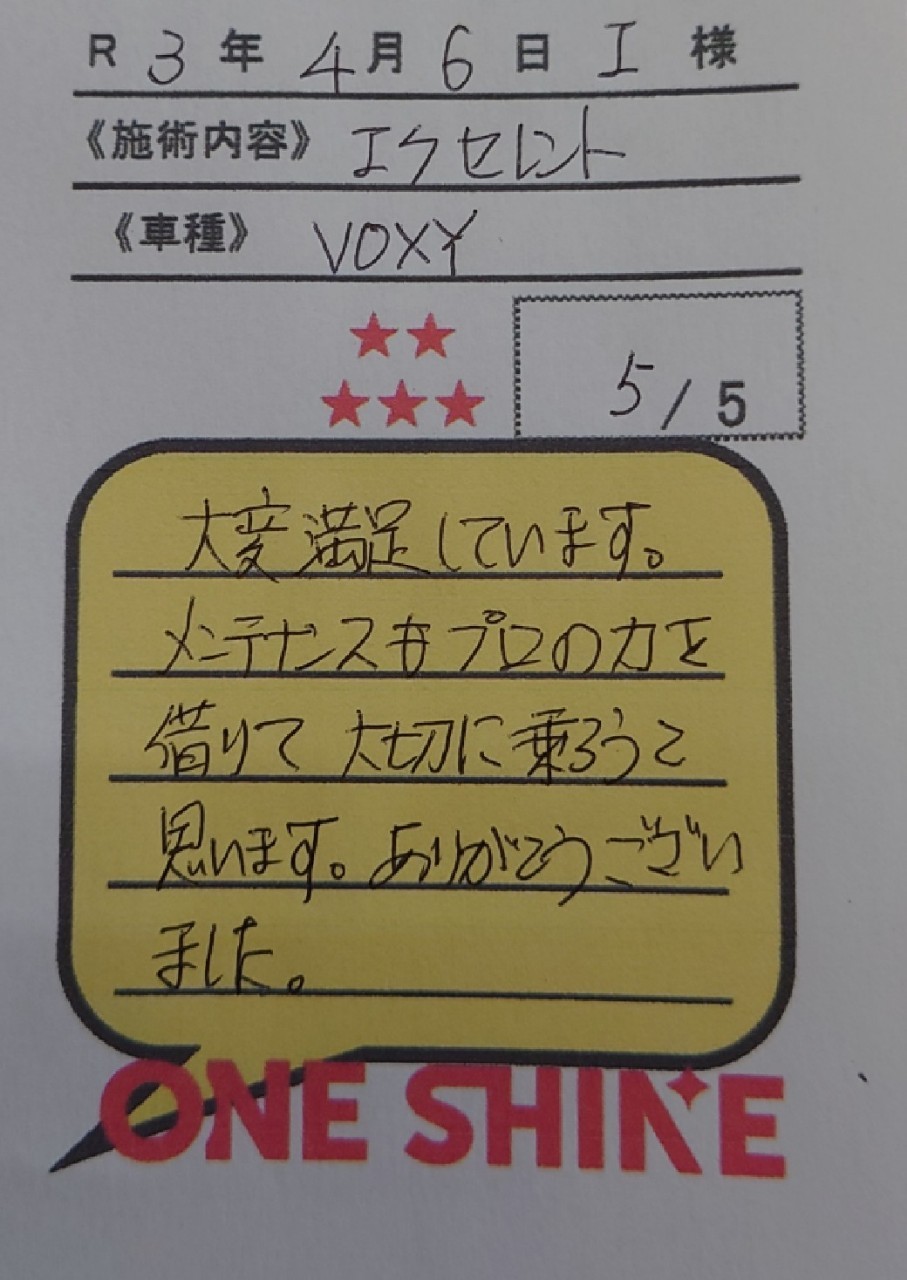 R 3 年 4 月 6 日 I 様
《施術内容》 エクセレント
《車種》 VOXY
★★
★★★
5/5
大変満足しています。
メンテナンスもプロの力を
借りて 大切に乗ろうと
思います。ありがとうござい
ました。
ONE SHINE